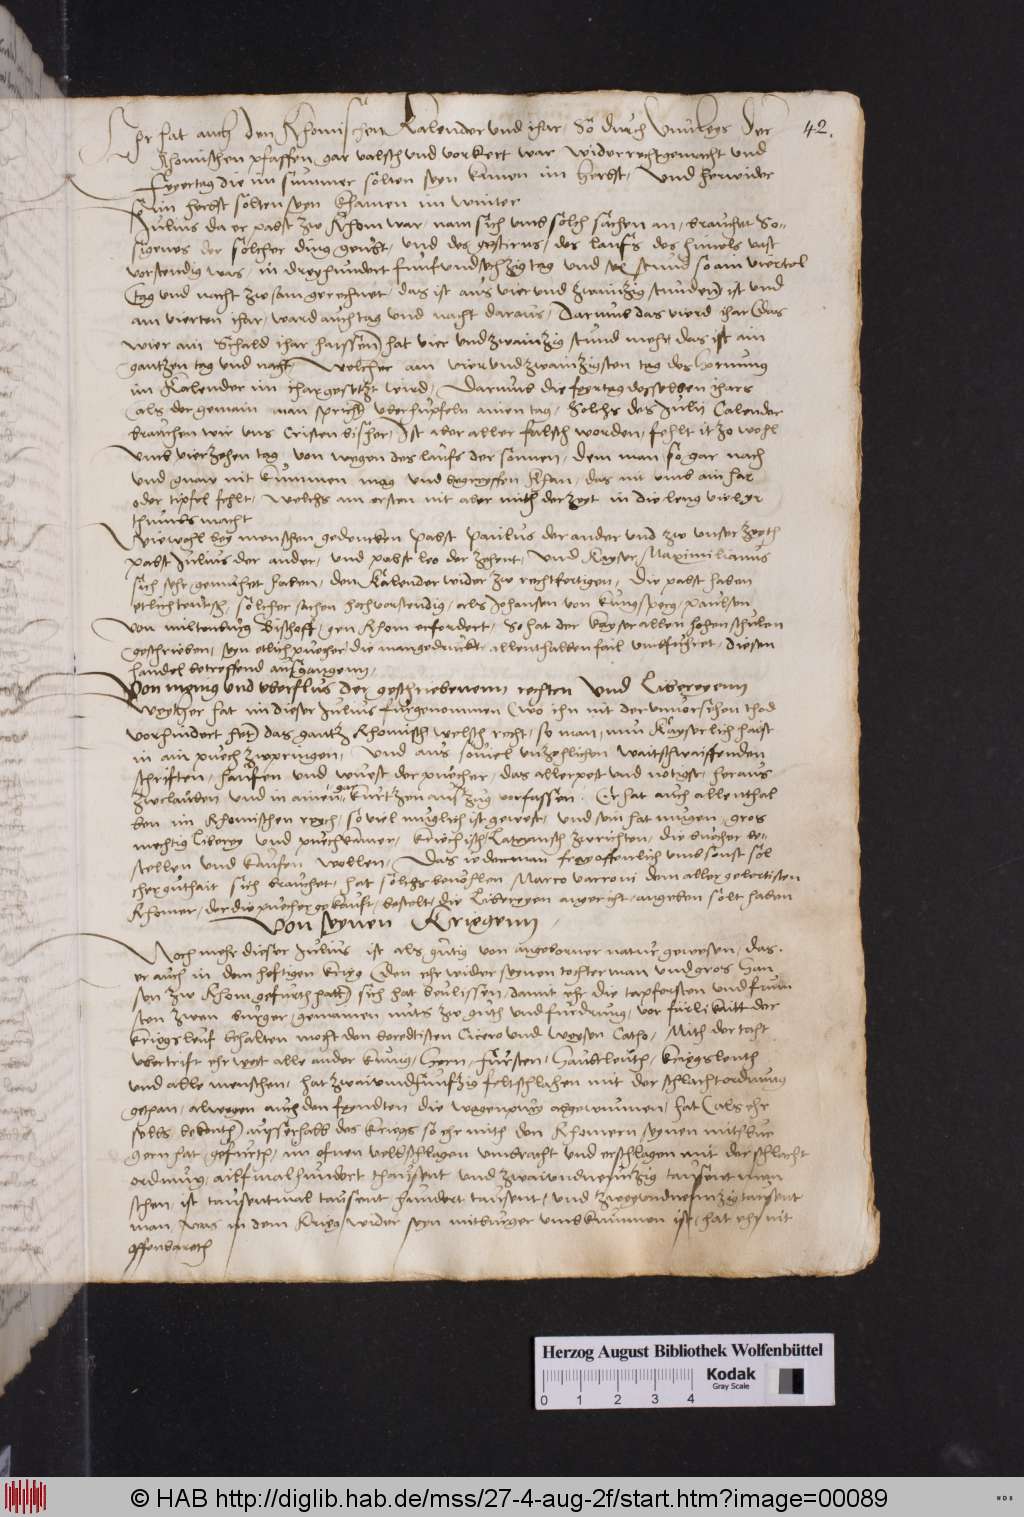 42.
Er hat auch den Rhomischen Kalender und ihar, so durch unvleys der
Rhomischen pfaffen, gar valsch und verkert war widerrecht gemacht und
Feyertag die im summer sölten seyn kamen im herbst, und herwider
so im herbst sölten seyn khamen im winter
Julius da er pabst zw Rhom war, nam sich umb sölch sachen an, brauchet So-
sigenes der sölcher ding geüst, und des gestirns, des laufs des himels vast
verstendig was, in dreyhundert funfundsechzig tag und sex stund so ain viertel
tag und nacht zwsam gerechnet, das ist aus vier und zwainzig stunden ist und
am vierten ihar, ward auch tag und nacht daraus, Darumb das vierd ihar (das
wier ain Schald ihar haissen) hat vier und zwainzig stund mehr das ist ain
gantzen tag und nacht, welcher am vierundzwainzigsten tag des Hornung
im Kalender im ihar gesetzt wird, Darumb die feyrtag desselben ihars
als der gemain man spricht uberhupfeln ainen tag, Solchs des Julij Calender
brauchen wir uns Cristen bisher, Ist aber aller falsch worden, fehlt itzo wohl
umb vierzehen tag, von wegen des laufs der sonnen, dem man so gar nach
und gnaw nit kummen mag und begreyffen khan, das nit umb ain har
oder tipfel fehlt, welchs am ersten nit aber mith der zeyt in die leng viel yr
thumbs macht
Wiewohl bey menschen gedencken Pabst Paulus der ander und zw unser zeyth
pabst Julius der ander, und pabst leo der zehent, und Kayser Maximilianus
sich sehr gemühet haben, den Kalender wider zw rechtfertigen, die pabst haben
etlich teutsch, sölcher sachen hochverstendig, als Johansen von kungsperg, paulsen
von miltenburg Bischoff, gen Rhom erfordert, So hat der kayser allen hohen schulen
geschrieben, seyn etlich puecher, die man gedruckt allenthalben fail umbfuhret, diesen
handel betreffend ausgangenn,
Von meng und uberflus der geschriebenenn rechten und Libereyenn
Weyther hat im dieser Julius fürgenommen (wo ihn nit der unversehen thod
verhindert het) das gantz Rhomisch welsch recht, so man nun Kayserlich haist
in ain puech zwpringen, und aus soviel unzehlichen waitschwaiffenden
schriften, hauffen und wuest der puecher, das allerpest und nötigst, heraus
zwclauben und in ainen gar kurtzen auszug verfassen. Er hat auch allenthal
ben im Rhomischen reych, so viel muglich ist gewest, und sein hat mugen, gros
mechtig liberey und puechkamer, kriechisch Lateynisch zwrichten, die buecher be-
stellen und kaufen wollen, Das iederman frey offentlich umb sonst söl
cher guthait sich brauchet, hat sölchs bevolhen Marco varroni dem aller gelertisten
Rhömer, der die puecher gekauft, bestelt, die Libereyen angericht, angeben solt haben
Von seynen Kriegenn,
Noch mehr dieser Julius ist als gütig von angeborner natur gewesen, das
er auch in dem heftigen krieg (den ehr wider seynen tochterman und gros Han
sen zw Rhom gefurth hatt) sich hat beulissen, damit ehr die tapfersten und frum
sten zwen burger, gemainen nutz zw guth und furdrung, vor färlikaitt der
kriegsleuf behalten möcht den beredtisten Cicero und weysen Catho, Mith der that
ubertrift ehr weyt alle ander kunig, Hern, fursten, Haubtleuth, kriegsleuth
und alle menschen, hat zwaiundfunfzig feltschlahen mit der schlachtordnung
gethan, alwegen auch den feyndten die wagenpurg abgewunnen, hat (als ehr
selbs bekenth) ausserhalb des kriegs so ehr mith den Rhomern seynen mitbur
gern hat gefurth, im ofnen veldschlagen umbracht und erschlagen mit der schlacht
ordnung, ailfmal hundert thausent und zwaiundneunzig tausent men
schen, ist tausentmal tausent hundert tausent, und zwayundneunzig tausent
man, was in dem krieg wider seyn mitburger umbkummen ist, hat ehr nit
offenbareth
Herzog August Bibliothek Wolfenbüttel
0 1 2 3 4
Kodak
Gray Scale
© HAB http://diglib.hab.de/mss/27-4-aug-2f/start.htm?image=00089